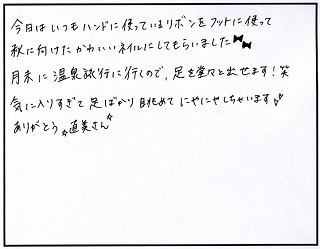 今日はいつもハンドに使っているリボンをフットに使って
秋に向けたかわいいネイルにしてもらいました
月末に温泉旅行に行くので、足を堂々と出せます！笑
気に入りすぎて足ばかり眺めてにやにやしちゃいます
ありがとう直美さん